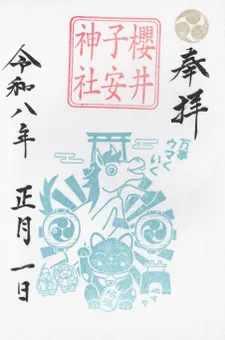 奉拝
櫻井
子安
神社
万事
ウマく
いく
令和八年
正月一日